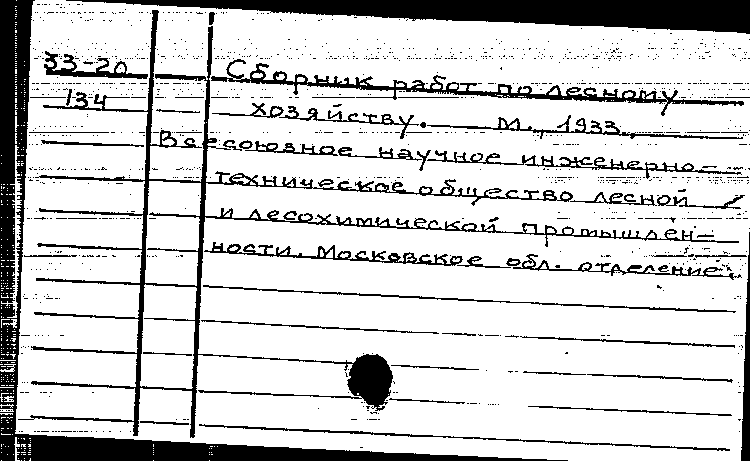 33-20 Сборник работ по лесному
134 хозяйству. М., 1933.
Всесоюзное научное инженерно-
техническое общество лесной
и лесохимической промышлен-
ности. Московское обл. отделение.